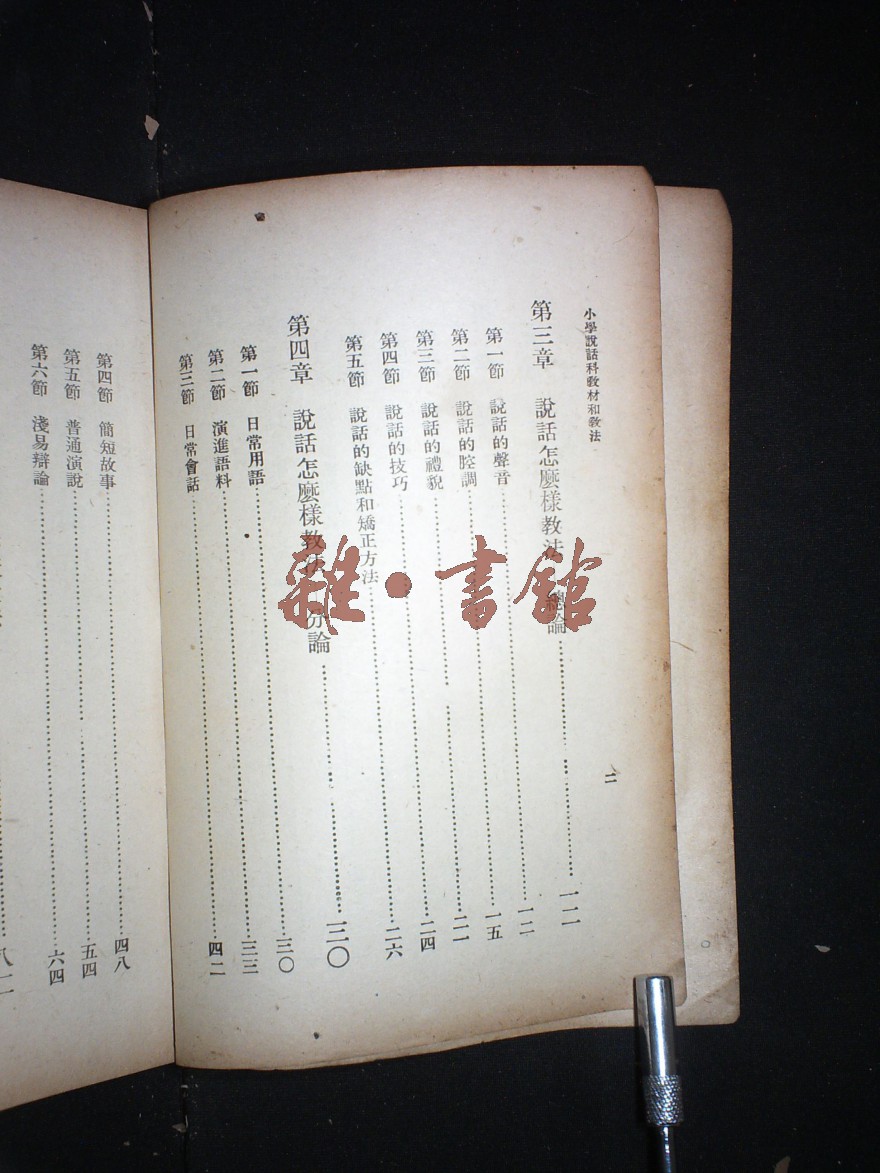 小學說話科教材和教法 二
第三章 說話怎麼樣教法 總論 一二
第一節 說話的聲音 一二
第二節 說話的腔調 一五
第三節 說話的禮貌 二一
第四節 說話的技巧 二四
第五節 說話的缺點和矯正方法 二六
第四章 說話怎麼樣教法 分論 三〇
第一節 日常用語 三〇
第二節 演進語料 三三
第三節 日常會話 四二
第四節 簡短故事 四八
第五節 普通演說 五四
第六節 淺易辯論 六四
雜·書館